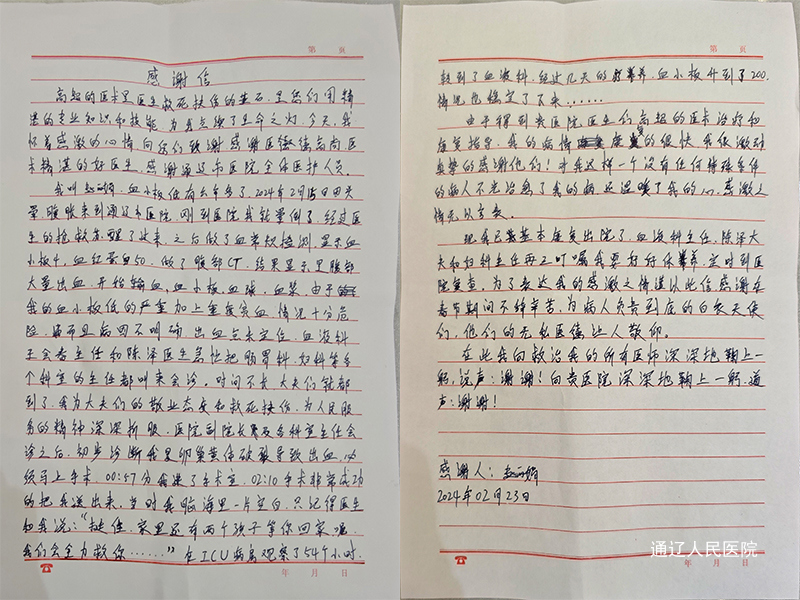 第 页
感谢信
高超的医术是医生救死扶伤的基石,是您们用精
湛的专业知识和技能,为我点燃了生命之灯,今天,我
怀着感激的心情向你们致谢,感谢医德高尚医
术精湛的好医生,感谢通辽市医院全体医护人员。
我叫 血小板低有六年多了,2024年2月15日因头
晕、腹胀来到通辽市医院,刚到医院我就晕倒了,经过医
生的抢救苏醒了过来,之后做了血常规检测,显示血
小板4,血红蛋白50,做了腹部CT,结果显示是腹部
大量出血,开始输血、血小板、血球、血浆,由于
我的血小板低的严重加上重度贫血,情况十分危
险,而且病因不明确,出血点未定位,血液科
主任和陈泽医生急忙把胃肠科、妇科等多
个科室的主任都叫来会诊。时间不长,大夫们就都
到了,我为大夫们的敬业态度和救死扶伤,为人民服
务的精神深深折服。医院副院长及各科室主任会
诊之后,初步诊断我是卵巢黄体破裂导致出血,必
须马上手术,00:57分我进了手术室,02:10手术非常成功
的把我送出来,当时我脑海里一片空白,只记得医生
和我说:“挺住,家里还有两个孩子等你回家呢,
我们会全力救你……”在ICU病房观察了54个小时,
年 月 日
第 页
转到了血液科,经过几天的 ,血小板升到了200,
情况也稳定了下来……
由于得到贵医院医生们高超的医术治疗和
康复指导,我的病情康复的很快,我很激动
真挚的感谢他们!对我这样一个没有任何特殊条件
的病人不光治愈了我的病还温暖了我的心,感激之
情无以言表。
现我已基本康复出院了,血液科主任,陈泽大
夫和妇科主任再三叮嘱我要好好保养,定时到医
院复查。为了表达我的感激之情谨以此信感谢在
春节期间不辞辛苦,为病人负责到底的白衣天使
们,他们的无私医德让人敬仰。
在此我向救治我的所有医师深深地鞠上一
躬,说声:谢谢!向贵医院深深地鞠上一躬,道
声:谢谢!
感谢人:
2024年02月23日
通辽人民医院
年 月 日